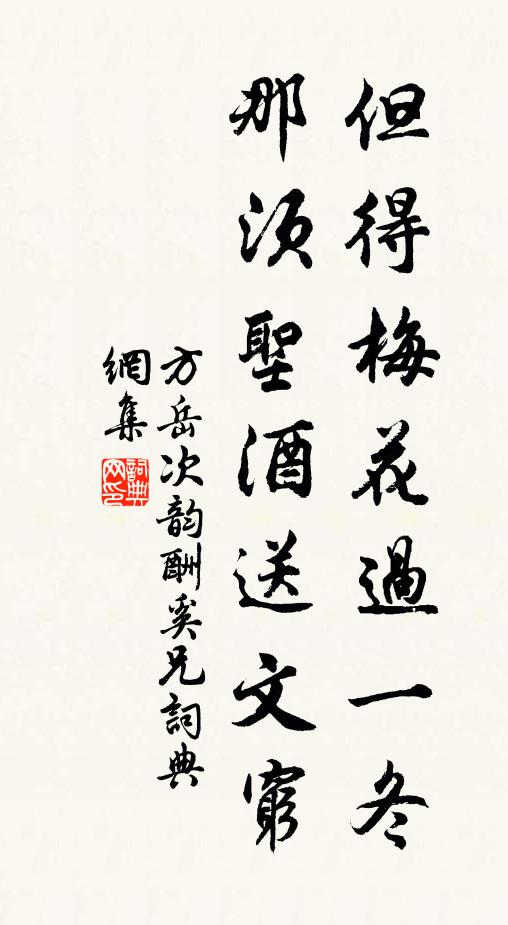 但得梅花過一冬
那須聖酒送文窮
方岳次韵酬奚兄詞典
網集
詞典网印